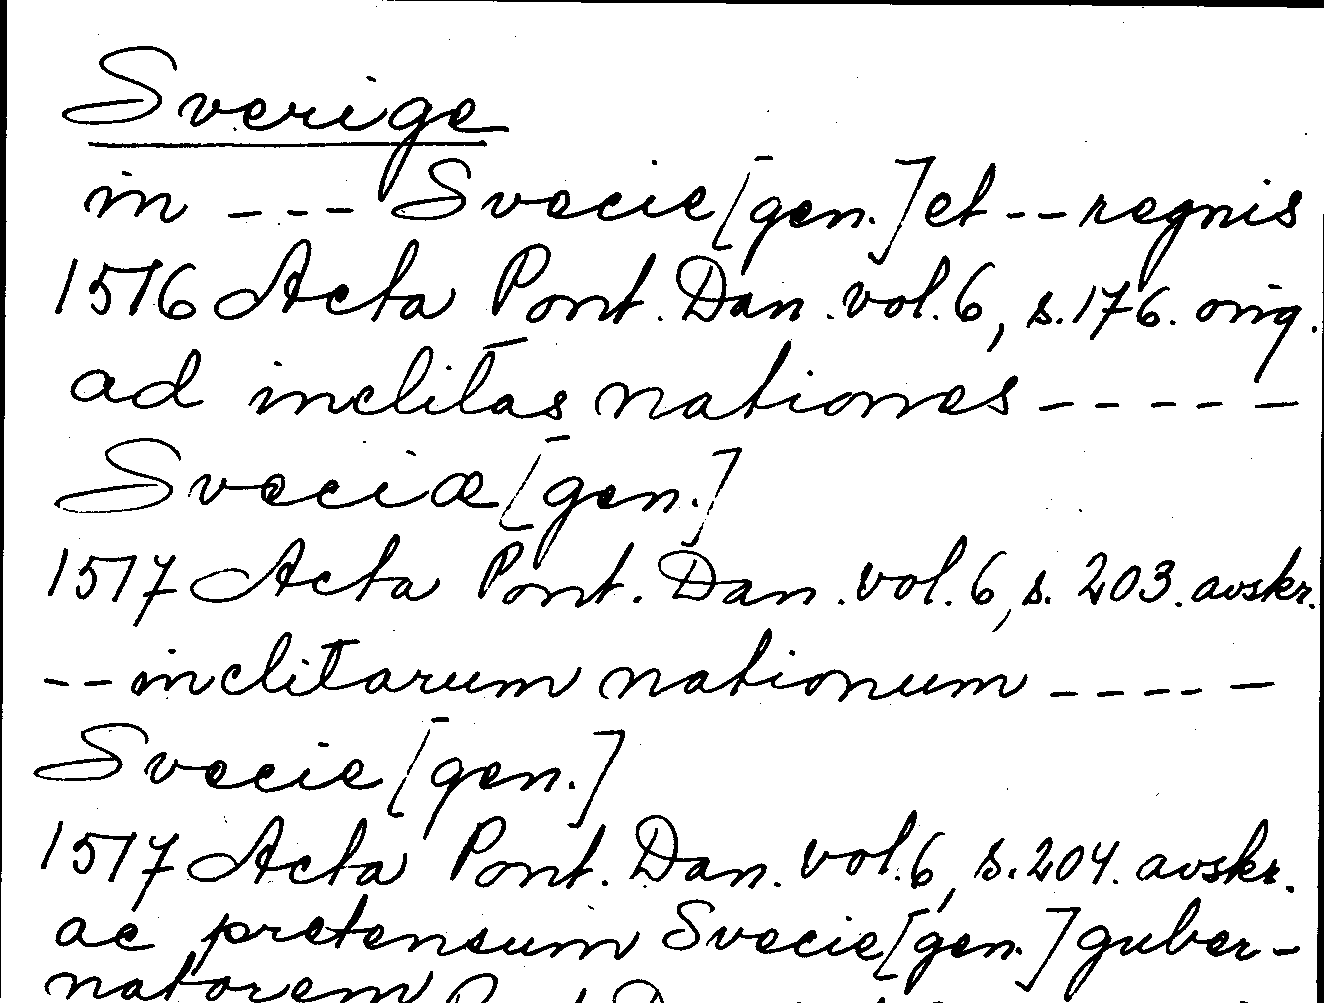 Sverige
in --- Svecie [gen.] et -- regnis
1516 Acta Pont. Dan. vol. 6, s. 176. orig.
ad inclitas nationes -----
Sveciæ [gen.]
1517 Acta Pont. Dan. vol. 6, s. 203. avskr.
-- inclitarum nationum -----
Svecie [gen.]
1517 Acta Pont. Dan. vol. 6, s. 204. avskr.
ac pretensum Svecie [gen.] guber-
natorem